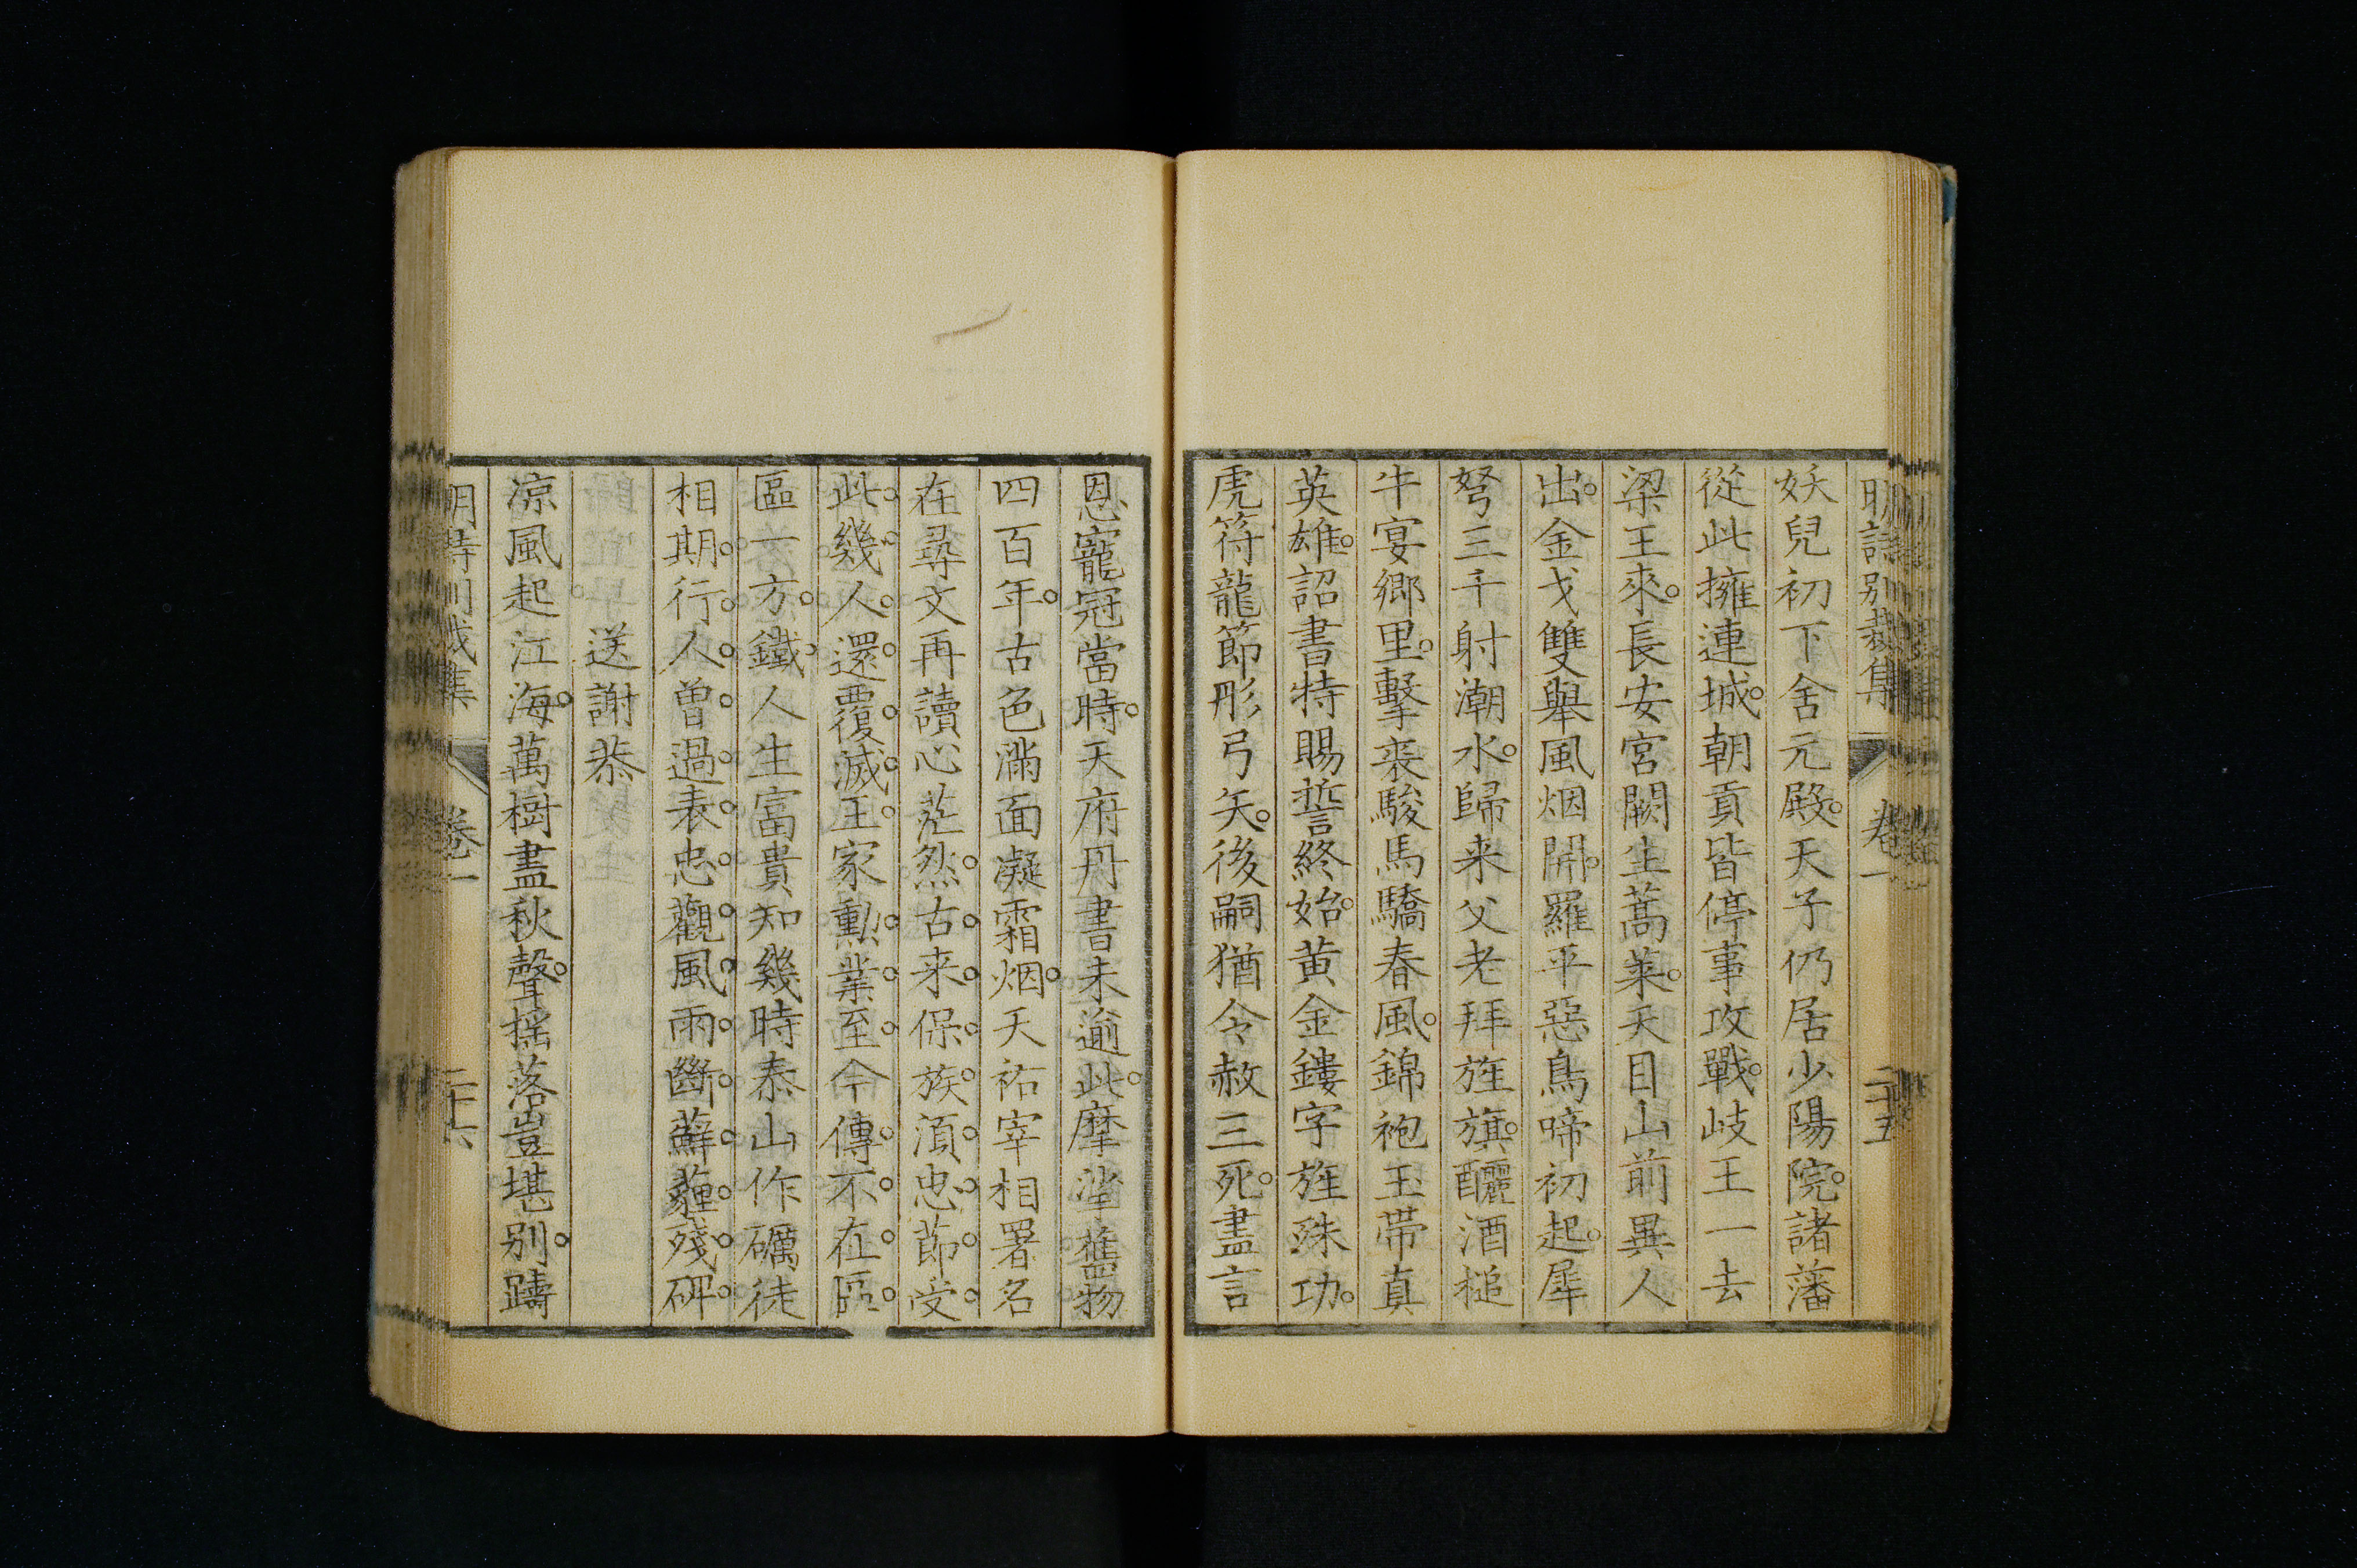 明詩別裁集 卷一 二十五
妖兒初下含元殿。天子仍居少陽院。諸藩
從此擁連城。朝貢皆停事攻戰。岐王一去
梁王來。長安宮闕生蒿萊。天目山前異人
出。金戈雙舉風烟開。羅平惡鳥啼初起。犀
弩三千射潮水。歸来父老拜旌旗。釃酒槌
牛宴鄉里。擊裘駿馬驕春風。錦袍玉帶真
英雄。詔書特賜誓終始。黄金鏤字旌殊功。
虎符龍節彤弓矢。後嗣猶令赦三死。盡言
恩寵冠當時。天府丹書未逾此。摩挲舊物
四百年。古色滿面凝霜烟。天祐宰相署名
在尋文再讀心茫然。古来保族湏忠莭。受
此幾人還覆滅。王家勳業至今傳不在區
區一方鐵。人生富貴知幾時泰山作礪徒
相期。行人曾過表忠觀。風雨斷蘚薶殘碑。
送謝恭
凉風起江海。萬樹盡秋聲。摇落豈堪别。躊
明詩別裁集 卷一 二十六